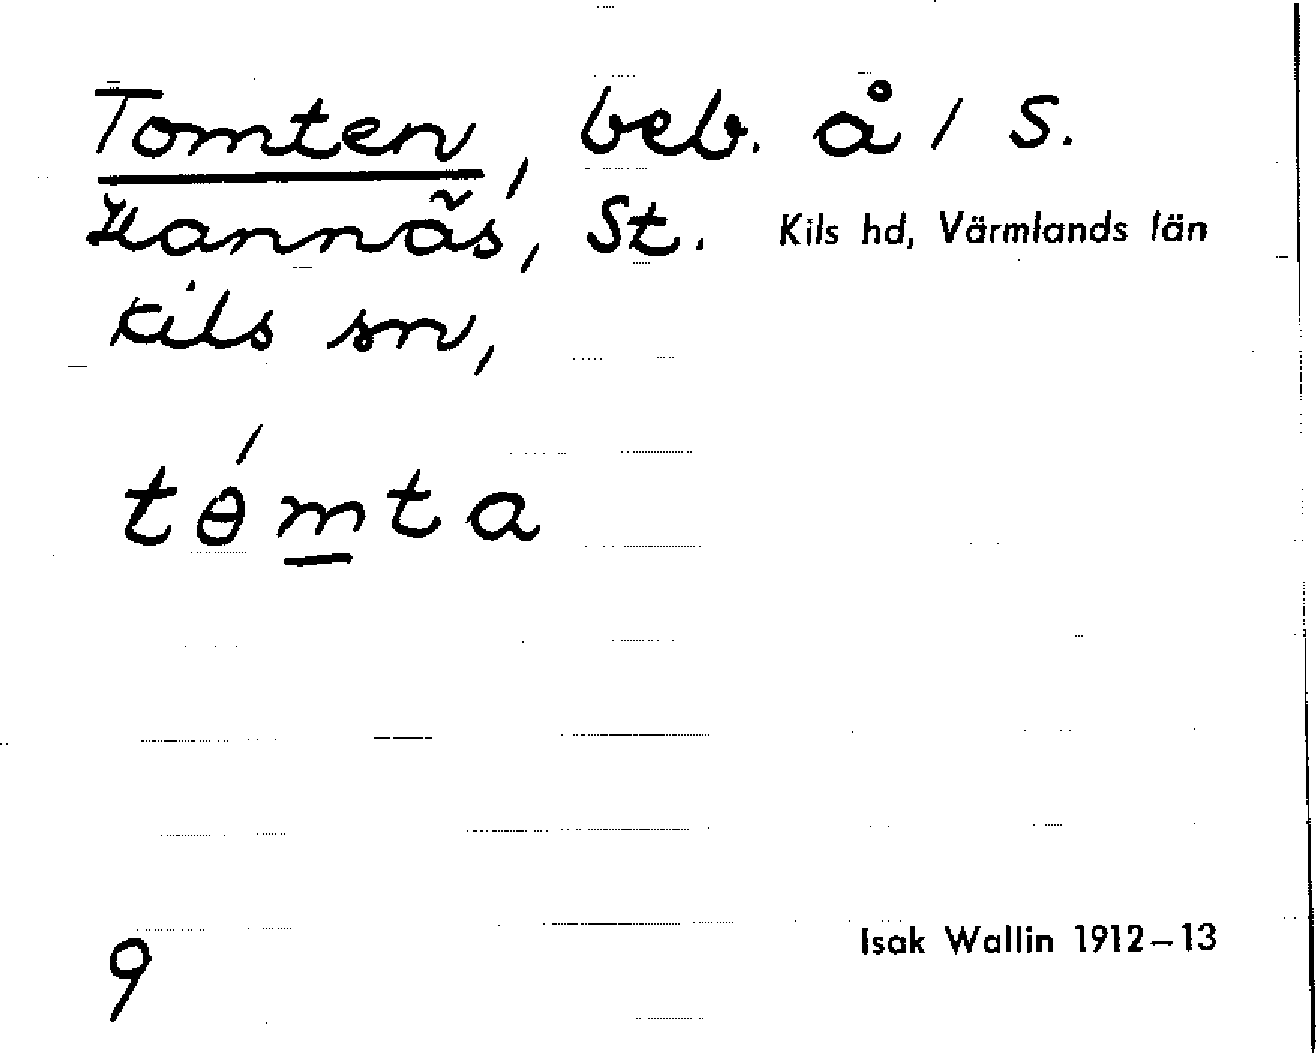 Tomten, beb. å 1/ S.
Hannäs, St. Kils hd, Värmlands län
Kils sn,
tɵ́mta
9
Isak Wallin 1912–13